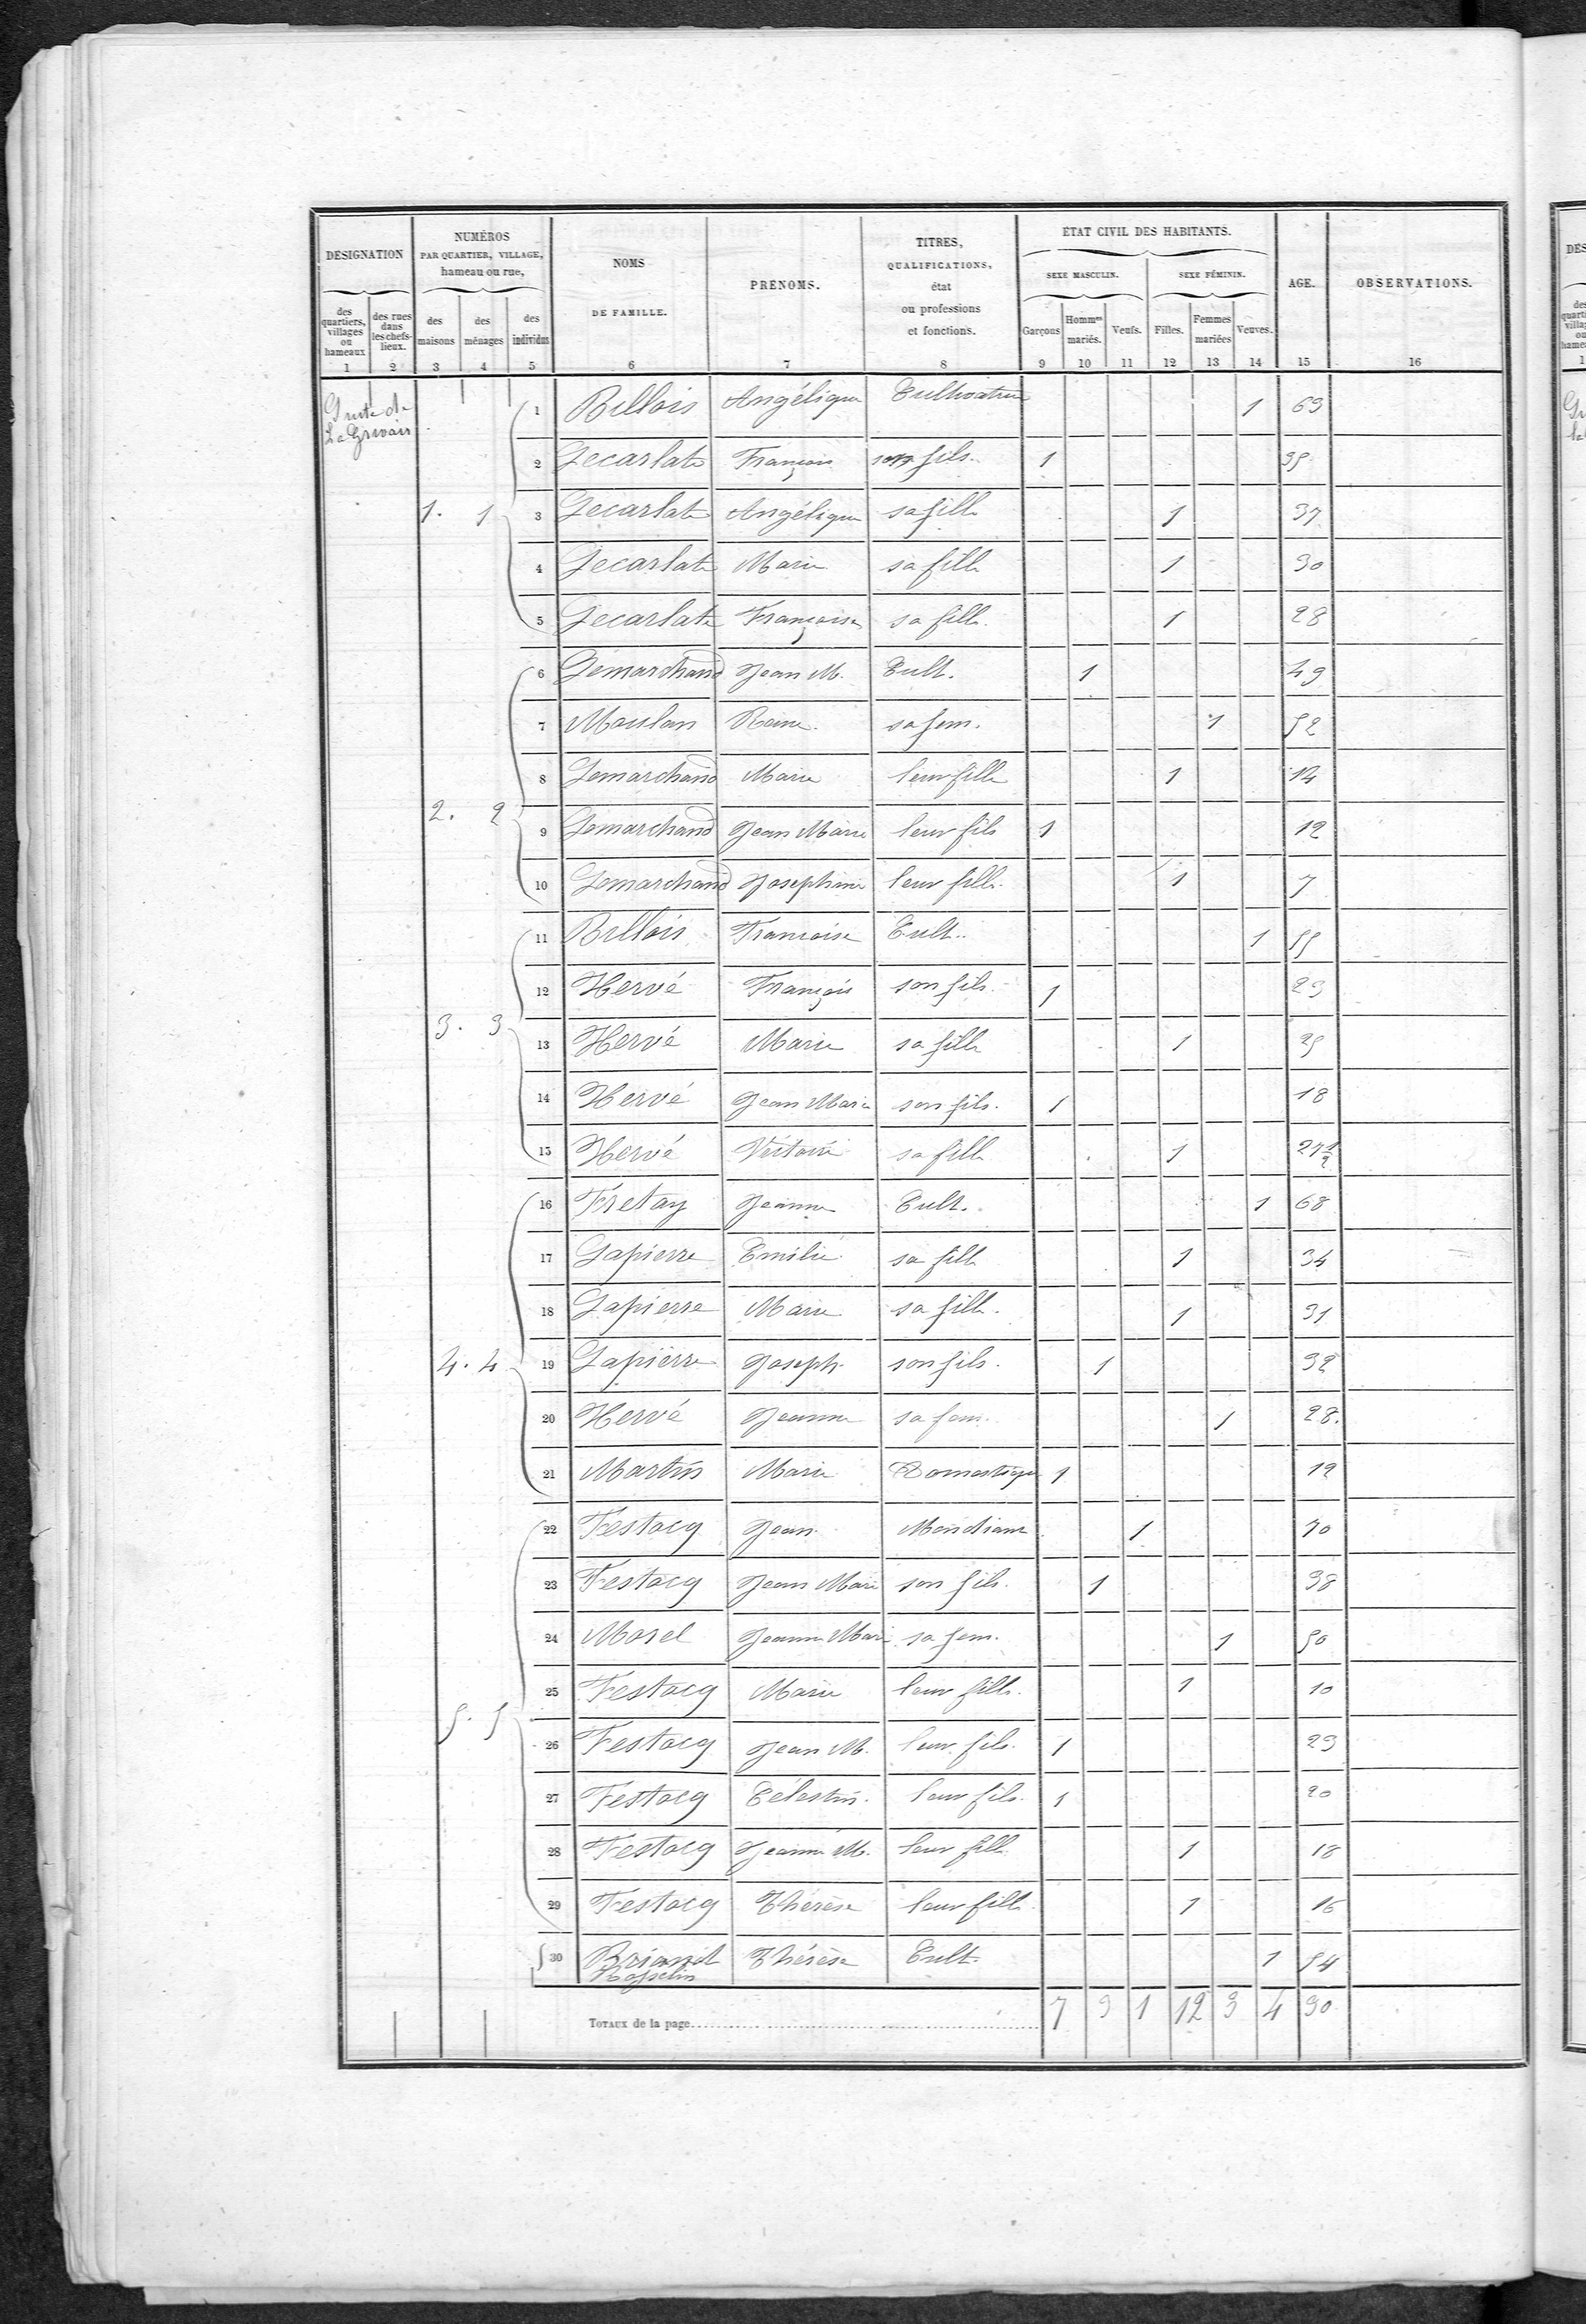 DESIGNATION
NUMÉROS
PAR QUARTIER, VILLAGE,
hameau ou rue,
NOMS
DE FAMILLE.
PRÉNOMS.
TITRES,
QUALIFICATIONS,
état
ou professions
et fonctions.
ÉTAT CIVIL DES HABITANTS.
SEXE MASCULIN.
SEXE FÉMININ.
AGE.
OBSERVATIONS.
des quartiers, villages ou hameaux
des rues dans les chefs-lieux.
des maisons
des ménages
des individus
Garçons
Hommes mariés.
Veufs.
Filles.
Femmes mariées
Veuves.
1 2 3 4 5 6 7 8 9 10 11 12 13 14 15 16
1 Billois Angélique Cultivatrice 1 69
2 Lecarlate François son fils. 1 35
1. 1 3 Lecarlate Angélique sa fille 1 37
4 Lecarlate Marie sa fille 1 30
5 Lecarlate Françoise sa fille. 1 28
6 Lemarchand Jean M. Cult. 1 49
7 Moulan Reine. sa fem. 1 52
8 Lemarchand Marie leur fille 1 14
2. 2 9 Lemarchand Jean Marie leur fils 1 12
10 Lemarchand Josephine leur fille. 1 7
11 Billois Francoise Cult. 1 55
12 Hervé François son fils. 1 23
3. 3 13 Hervé Marie sa fille 1 25
14 Hervé Jean Marie son fils. 1 18
15 Hervé Victoire sa fille 1
16 Fretay Jeanne Cult. 1 68
17 Lapierre Emilie sa fille 1 34
18 Lapierre Marie sa fille. 1 31
4. 4 19 Lapierre Joseph son fils. 1 32
20 Hervé Jeanne sa fem. 1 28.
21 Martin Marie Domestique 1 19
22 Festocq Jean Mendiant 1 70
23 Festocq Jean Marie son fils. 1 38
24 Morel Jeanne Marie sa fem. 1 50
25 Festocq Marie leur fille. 1 10
5. 5 26 Festocq Jean M. leur fils. 1 23
27 Festocq Célestin. leur fils. 1 20
28 Festocq Jeanne M. leur fille 1 18
29 Festocq Thérèse leur fille 1 16
30 Briand Thérèse Cult. 1 54
Rosselin
TOTAUX de la page 7 3 1 12 3 4 30